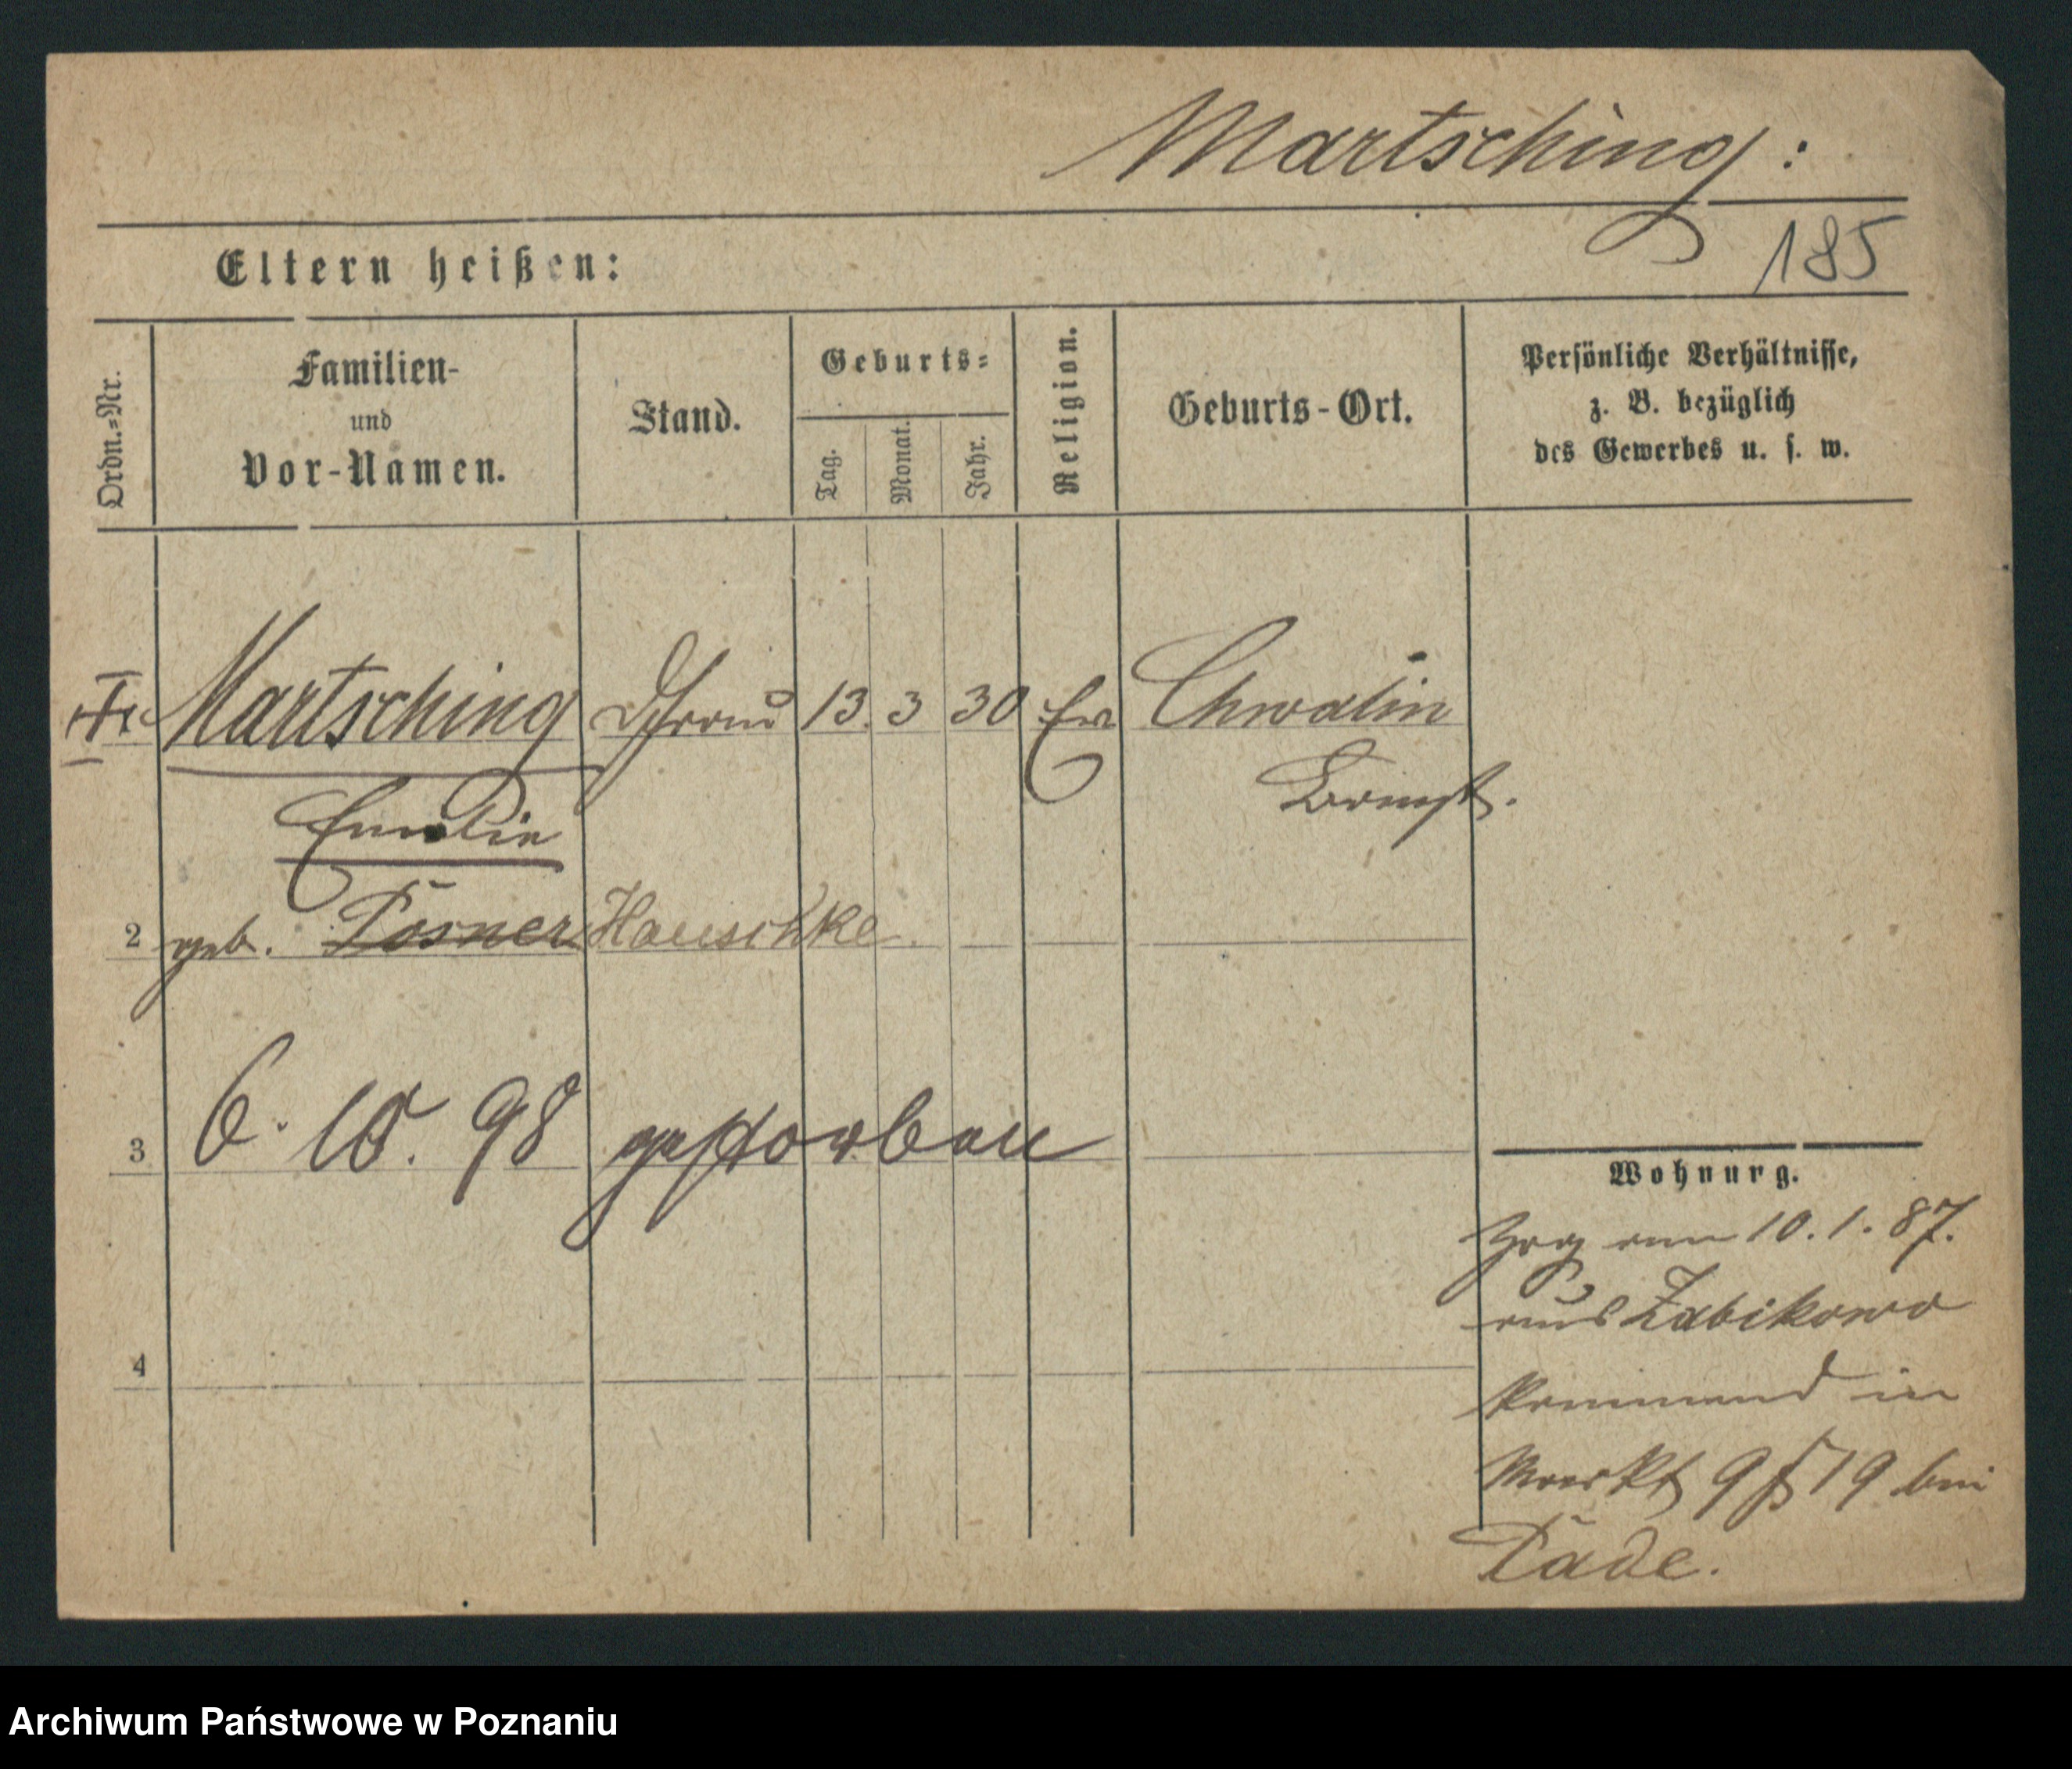 Martsching:
185
Eltern heißen:
Ordn.-Nr.
Familien-
und
Vor-Namen.
Stand.
Geburts-
Tag.
Monat.
Jahr.
Religion.
Geburts-Ort.
Persönliche Verhältnisse,
z. B. bezüglich
des Gewerbes u. s. w.
Martsching 13. 3 30 Ev Chwalin
Bomst.
Emilie
2 geb. Posner Hauschke
3 6. 10. 98 gestorben
4
Wohnung.
Zog am 10. 1. 87.
aus Zabikowo
kommend in
Markt 9 19 bei
Tade.
Archiwum Państwowe w Poznaniu